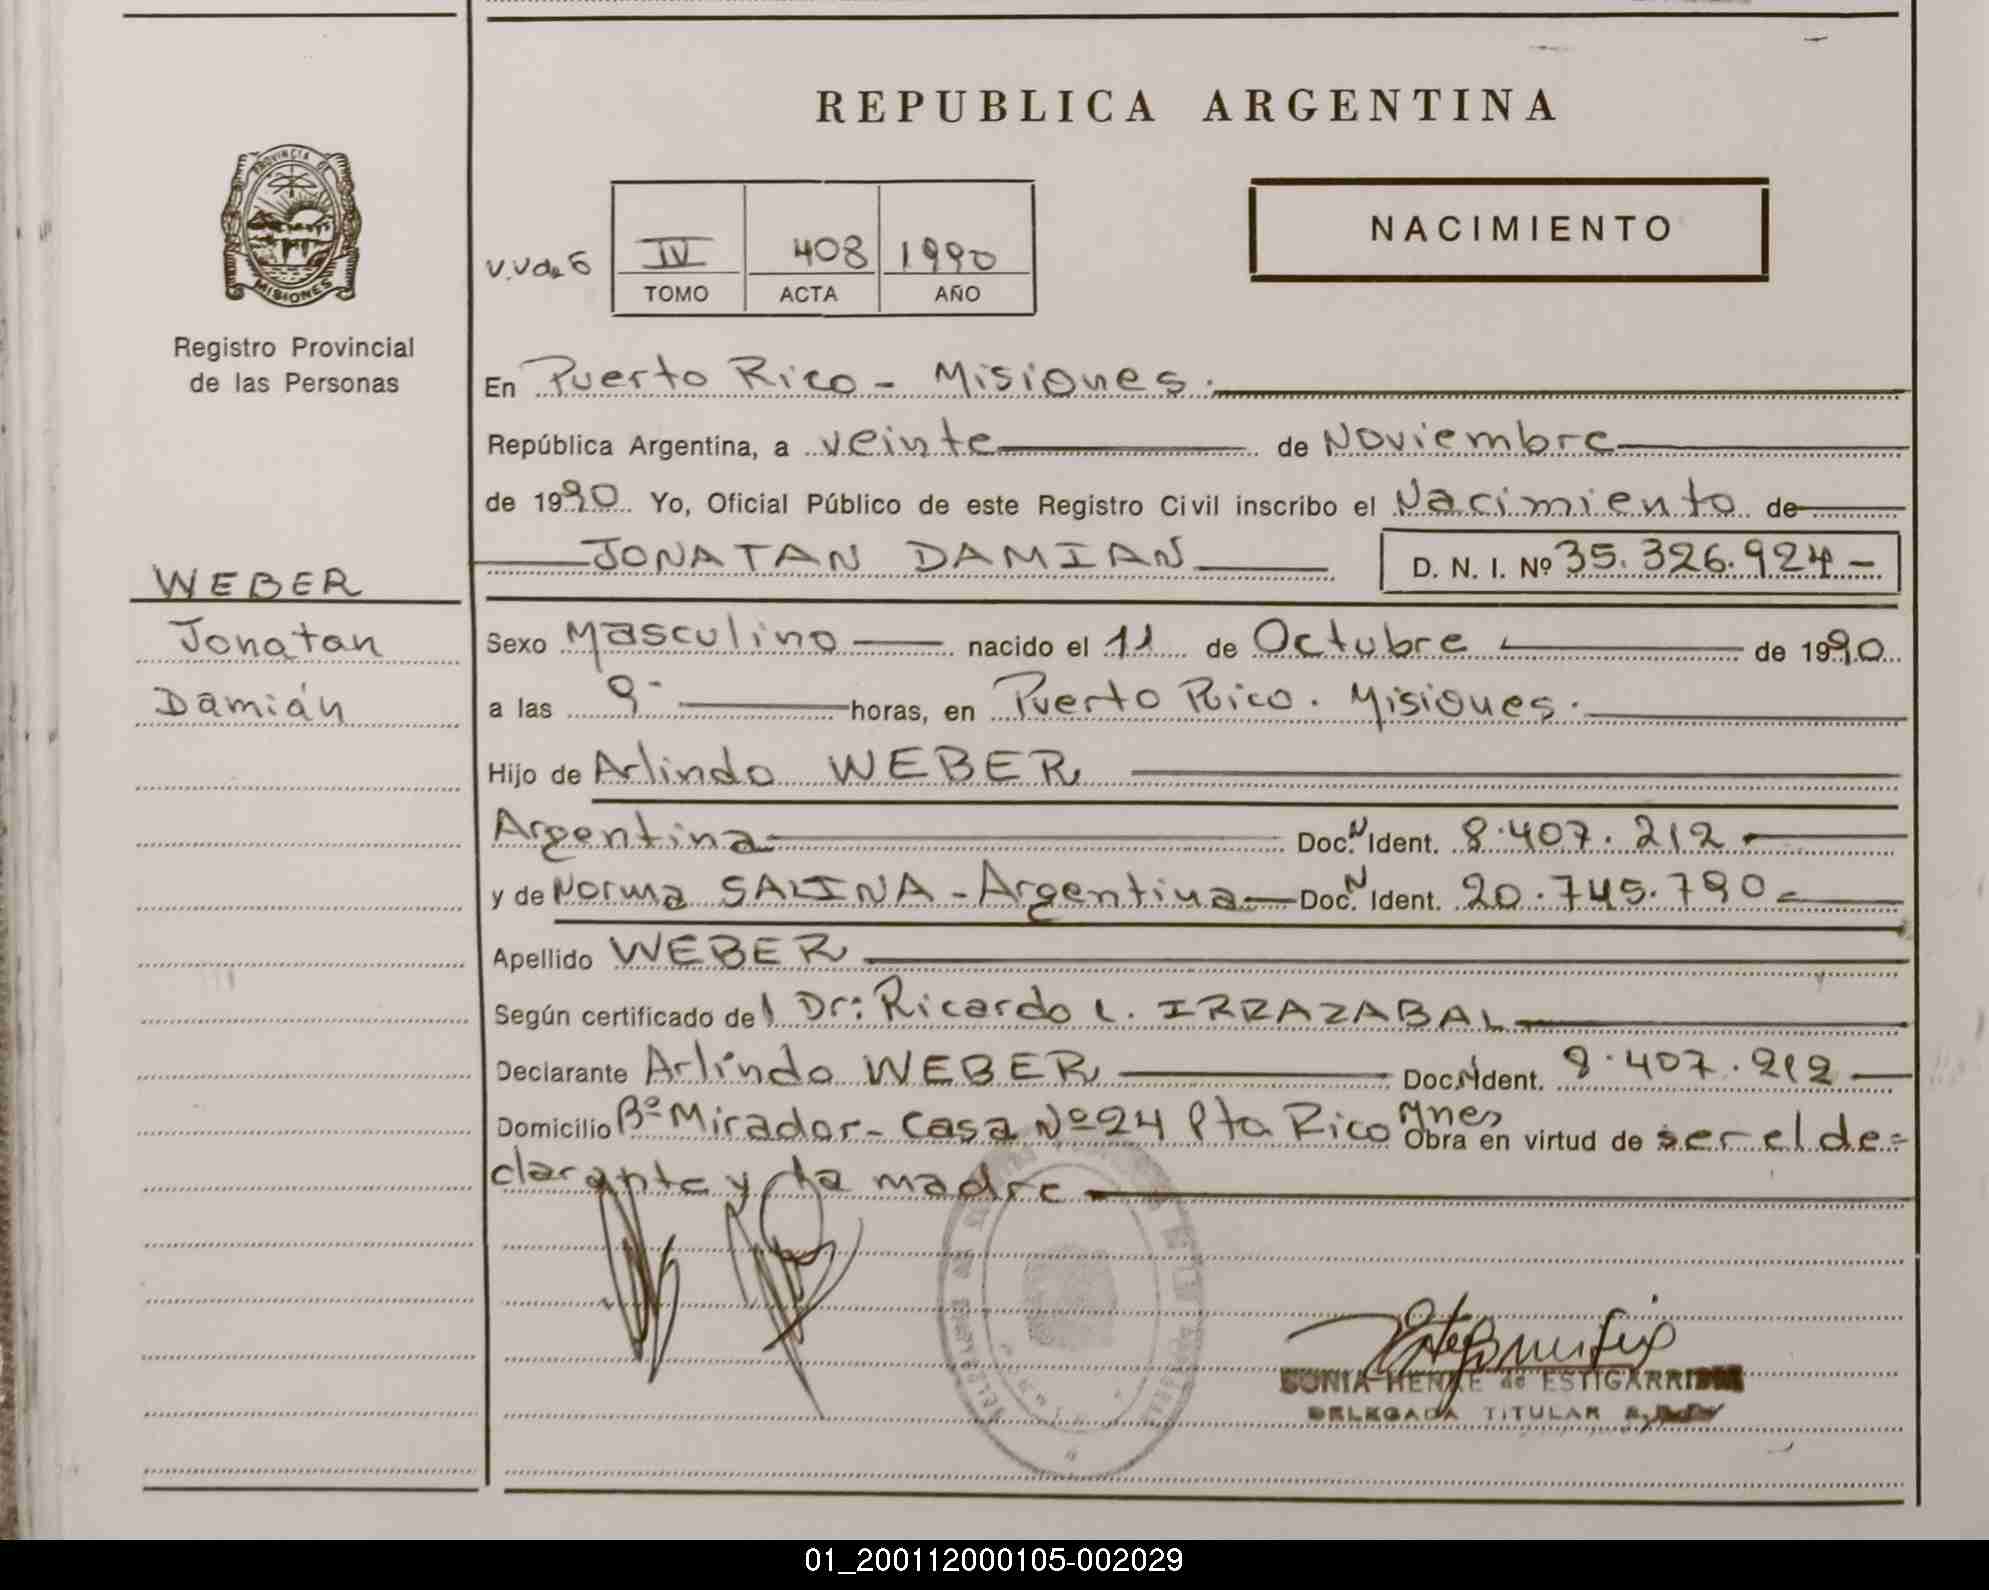 REPUBLICA ARGENTINA
PROVINCIA DE
MISIONES
Registro Provincial
de las Personas
NACIMIENTO
IV 408 1990
TOMO ACTA AÑO
En Puerto Rico - Misiones.
República Argentina, a veinte de Noviembre
de 1990 Yo, Oficial Público de este Registro Civil inscribo el Nacimiento de
JONATAN DAMIAN D. N. I. Nº 35.326.924-
WEBER
Jonatan
Damián
Sexo Masculino nacido el 11 de Octubre de 1990
a las 9- horas, en Puerto Rico. Misiones.
Hijo de Arlindo WEBER
Argentina Doc. N Ident. 8.407.212
y de Norma SALINA - Argentina Doc. N Ident. 20.745.790
Apellido WEBER
Según certificado del Dr: Ricardo L. IRRAZABAL
Declarante Arlindo WEBER Doc. N Ident. 8.407.212
Domicilio Bº Mirador - Casa Nº 24 Pto Rico Mnes Obra en virtud de ser el de=
clarante y la madre
SONIA HENKE de ESTIGARRIBIA
DELEGADA TITULAR
01_200112000105-002029